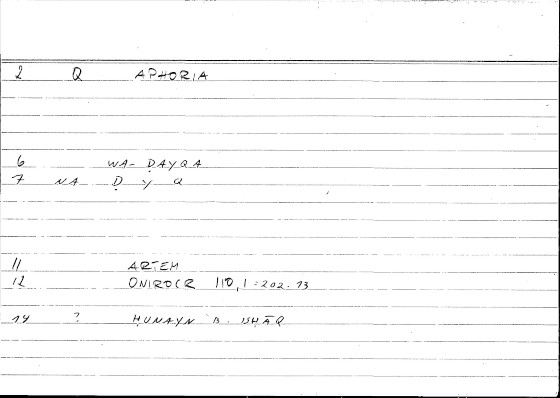 2 Q APHORIA
6 WA- ḌAYQA
7 NA Ḍ Y Q
11 ARTEM
12 ONIROCR 110,1 = 202.13
14 ? ḤUNAYN B. ISḤĀQ